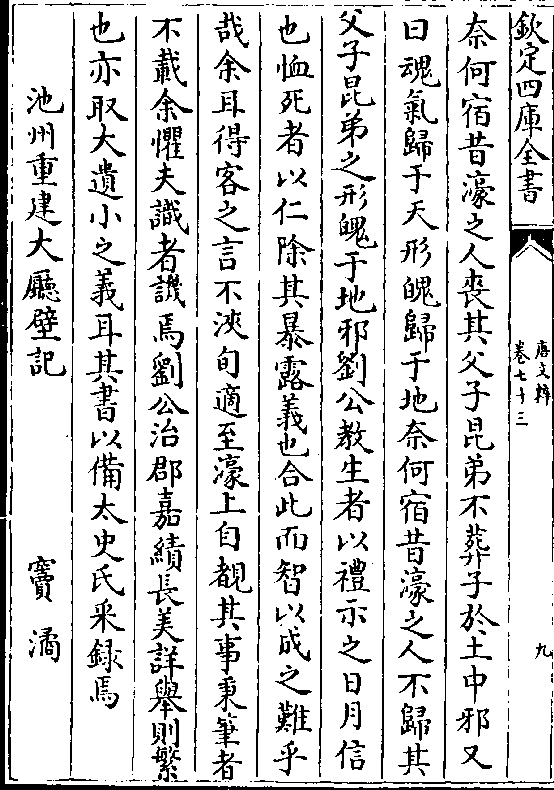 欽定四庫全書
唐文粹
卷七十三
九
奈何宿昔濠之人喪其父子昆弟不葬子於土中邪又
曰魂氣歸于天形魄歸于地奈何宿昔濠之人不歸其
父子昆弟之形魄于地邪劉公教生者以禮示之日月信
也恤死者以仁除其暴露義也合此而智以成之難乎
哉余耳得客之言不浹旬適至濠上自覩其事秉筆者
不載余懼夫識者譏焉劉公治郡嘉績長美詳舉則繁
也亦取大遺小之義耳其書以備太史氏采錄焉
池州重建大廳壁記 竇潏